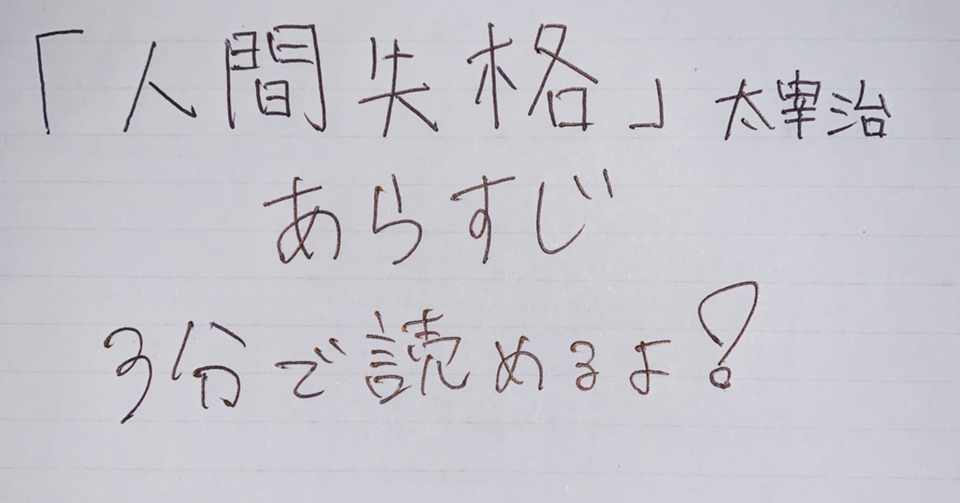 「人間失格」太宰治
あらすじ
3分で読めるよ?